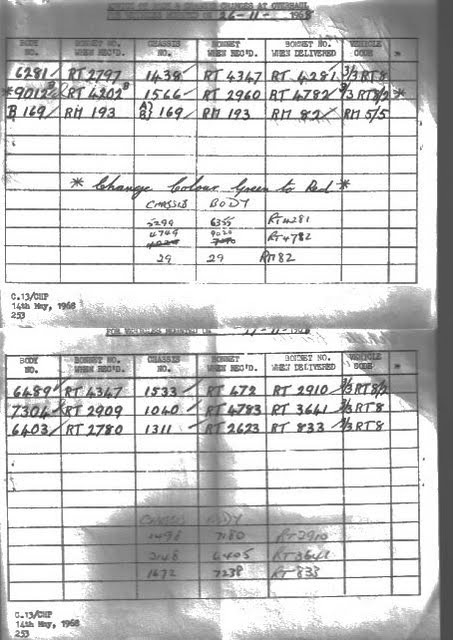 BODY & CHASSIS CHANGES AT OVERHAUL
FOR VEHICLES 26-11-1968
BODY NO. BONNET NO. WHEN REC'D. CHASSIS NO. BONNET WHEN REC'D. BONNET NO. WHEN DELIVERED VEHICLE CODE
6281 RT 2797 1438 RT 4347 RT 4281 3/3 RT8
*9012 RT 4202 1566 RT 2960 RT 4782 RT8/2 *
B 169 RM 193 169 RM 193 RM 82 RM 5/5
* Change Colour Green to Red *
CHASSIS BODY
5299 6355 RT4281
4749 9020 RT4782
29 29 RM82
C.13/CHP
14th May, 1968
253
FOR VEHICLES
BODY NO. BONNET NO. WHEN REC'D. CHASSIS NO. BONNET WHEN REC'D. BONNET NO. WHEN DELIVERED VEHICLE CODE
6489 RT 4347 1533 RT 472 RT 2910 3/3 RT8/2
7304 RT 2909 1040 RT 4783 RT 3641 3/3 RT8
6403 RT 2780 1311 RT 2623 RT 833 3/3 RT8
CHASSIS BODY
1498 7180 RT2910
2148 6405 RT3641
1672 7238 RT 833
C.13/CHP
14th May, 1968
253